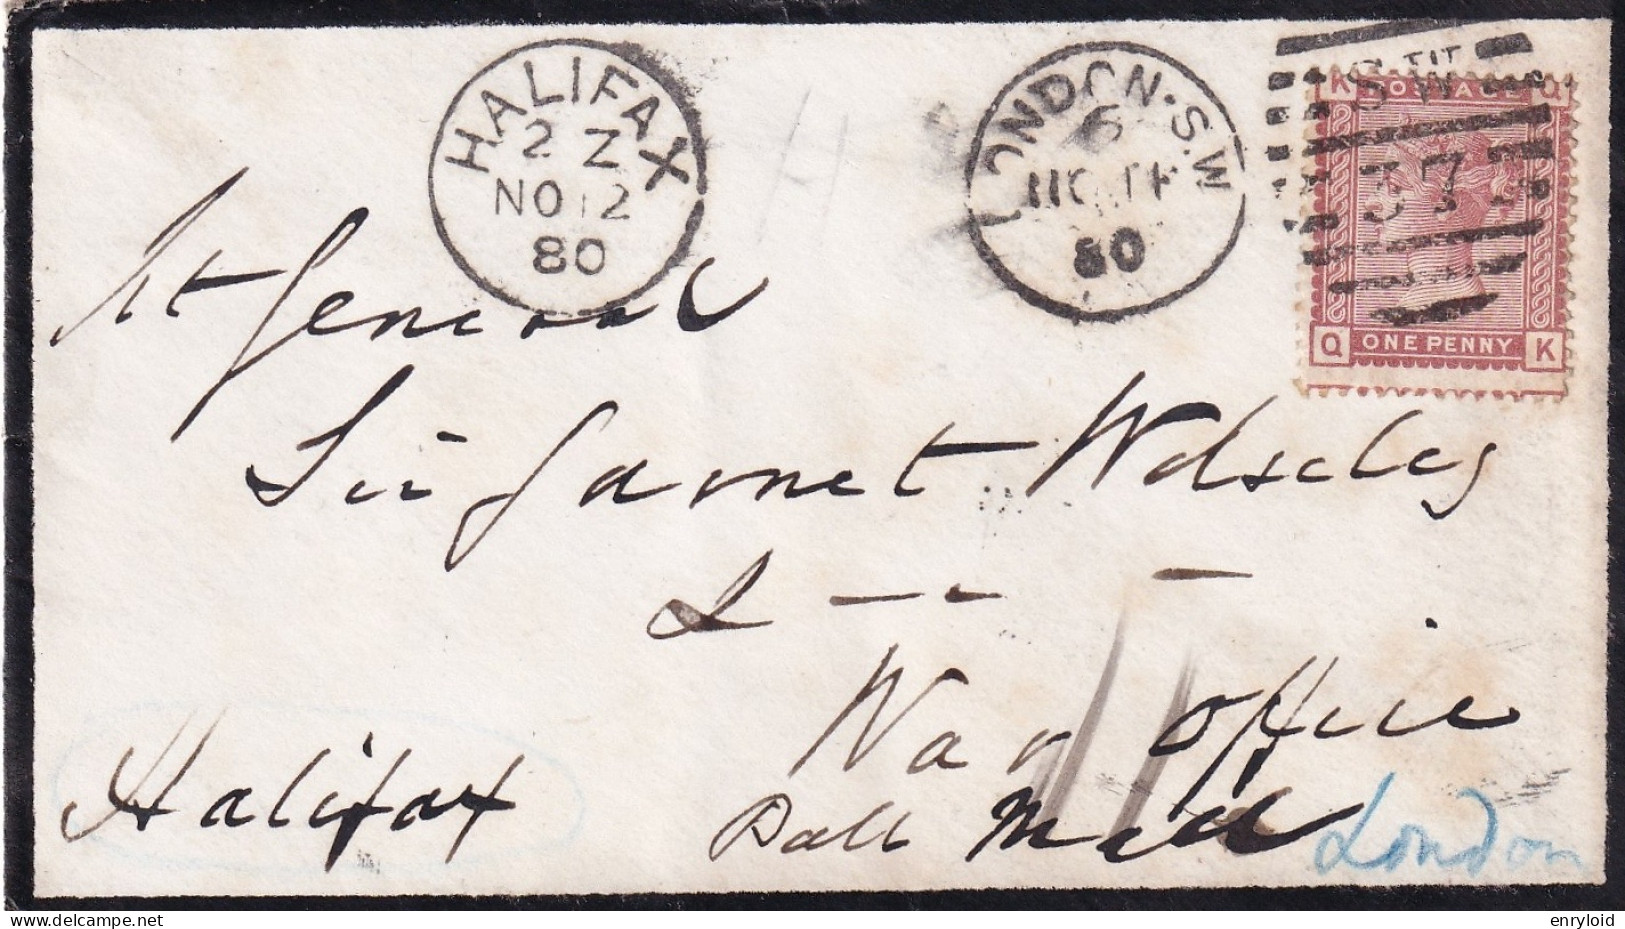 HALIFAX
2 Z
NO 12
80
LONDON·S.W
6
80
S.W
37
K POSTAGE Q
Q ONE PENNY K
Lt General
Sir Garnet Wolseley
War Office
Pall Mall
London
Halifax
enryloid